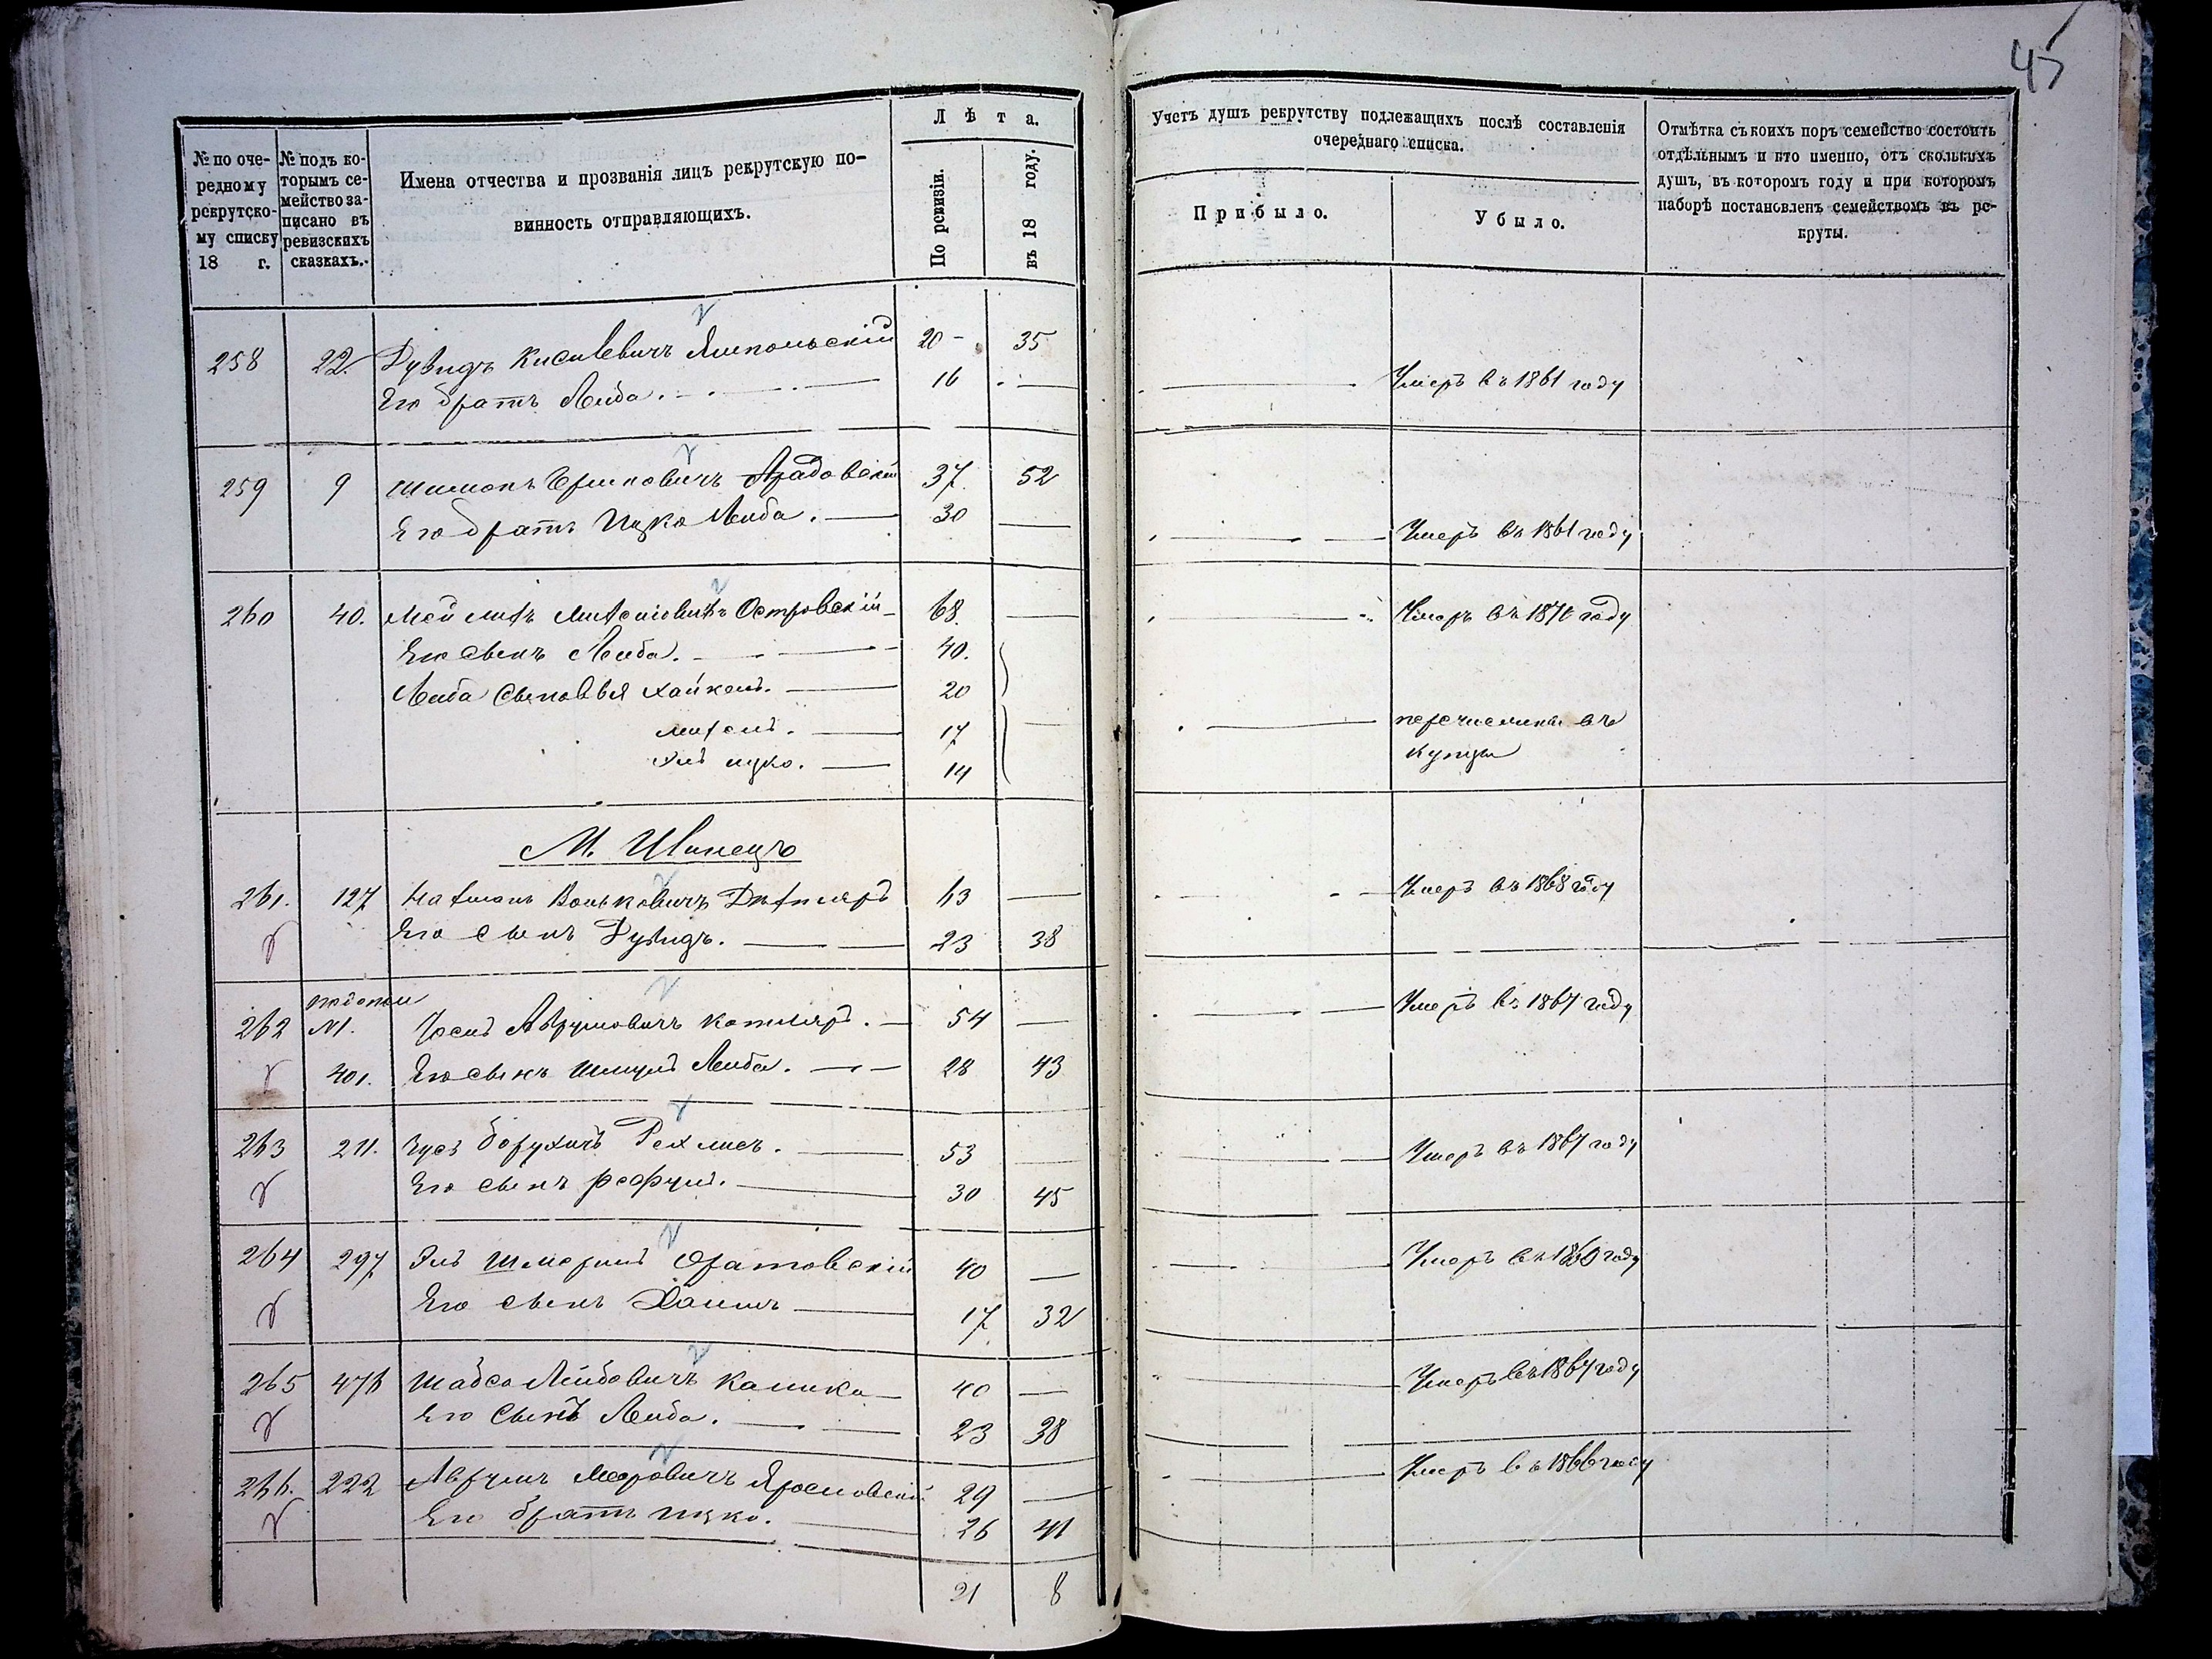 45
№ по оче-
редному
рекрутско-
му списку
18 г.
№ подъ ко-
торымъ се-
мейство за-
писано въ
ревизскихъ
сказкахъ.
Имена отчества и прозванія лицъ рекрутскую по-
винность отправляющихъ.
Лѣта.
По ревизіи.
въ 18 году.
Учетъ душъ рекрутству подлежащихъ послѣ составленія
очереднаго списка.
Прибыло.
Убыло.
Отмѣтка съ коихъ поръ семейство состоитъ
отдѣльнымъ и кто именно, отъ сколькихъ
душъ, въ которомъ году и при которомъ
наборѣ постановленъ семействомъ въ ре-
круты.
258 22. Дувидъ Кисилевичъ Ямпольскій 20 35
Его братъ Лейба. 16 — Умеръ въ 1861 году
259 9 Шимонъ 37 52
Его братъ Ицко Лейба. 30 — Умеръ въ 1861 году
260 40. Островскій 68. — Умеръ въ году
Его сынъ Лейба. 40.
Лейба сыновья Хайкель. 20
17 — перечислены въ
ицко. 14 купцы
М. Иванецъ
261. 127 Нахманъ Вольковичъ 63 — Умеръ въ 1868 году
Его сынъ Дувидъ. 23 38
262 №1. Іосъ Аврумовичъ Котляръ. 54 — Умеръ въ 1867 году
401. Его сынъ Шмуль Лейба. 28 43
263 211. Зусь Борухичъ 53 — Умеръ въ 1867 году
Его сынъ Рефуль. 30 45
264 297 Эль Шмерилъ Оратовскій 40 — Умеръ въ 1860 году
Его сынъ Хаимъ 17 32
265 476 Шабса Лейбовичъ 40 — Умеръ въ 1867 году
Его сынъ Лейба. 23 38
266. 222 Аврумъ Меровичъ 29 — Умеръ въ 1866 году
Его братъ Ицко. 26 41
21 8